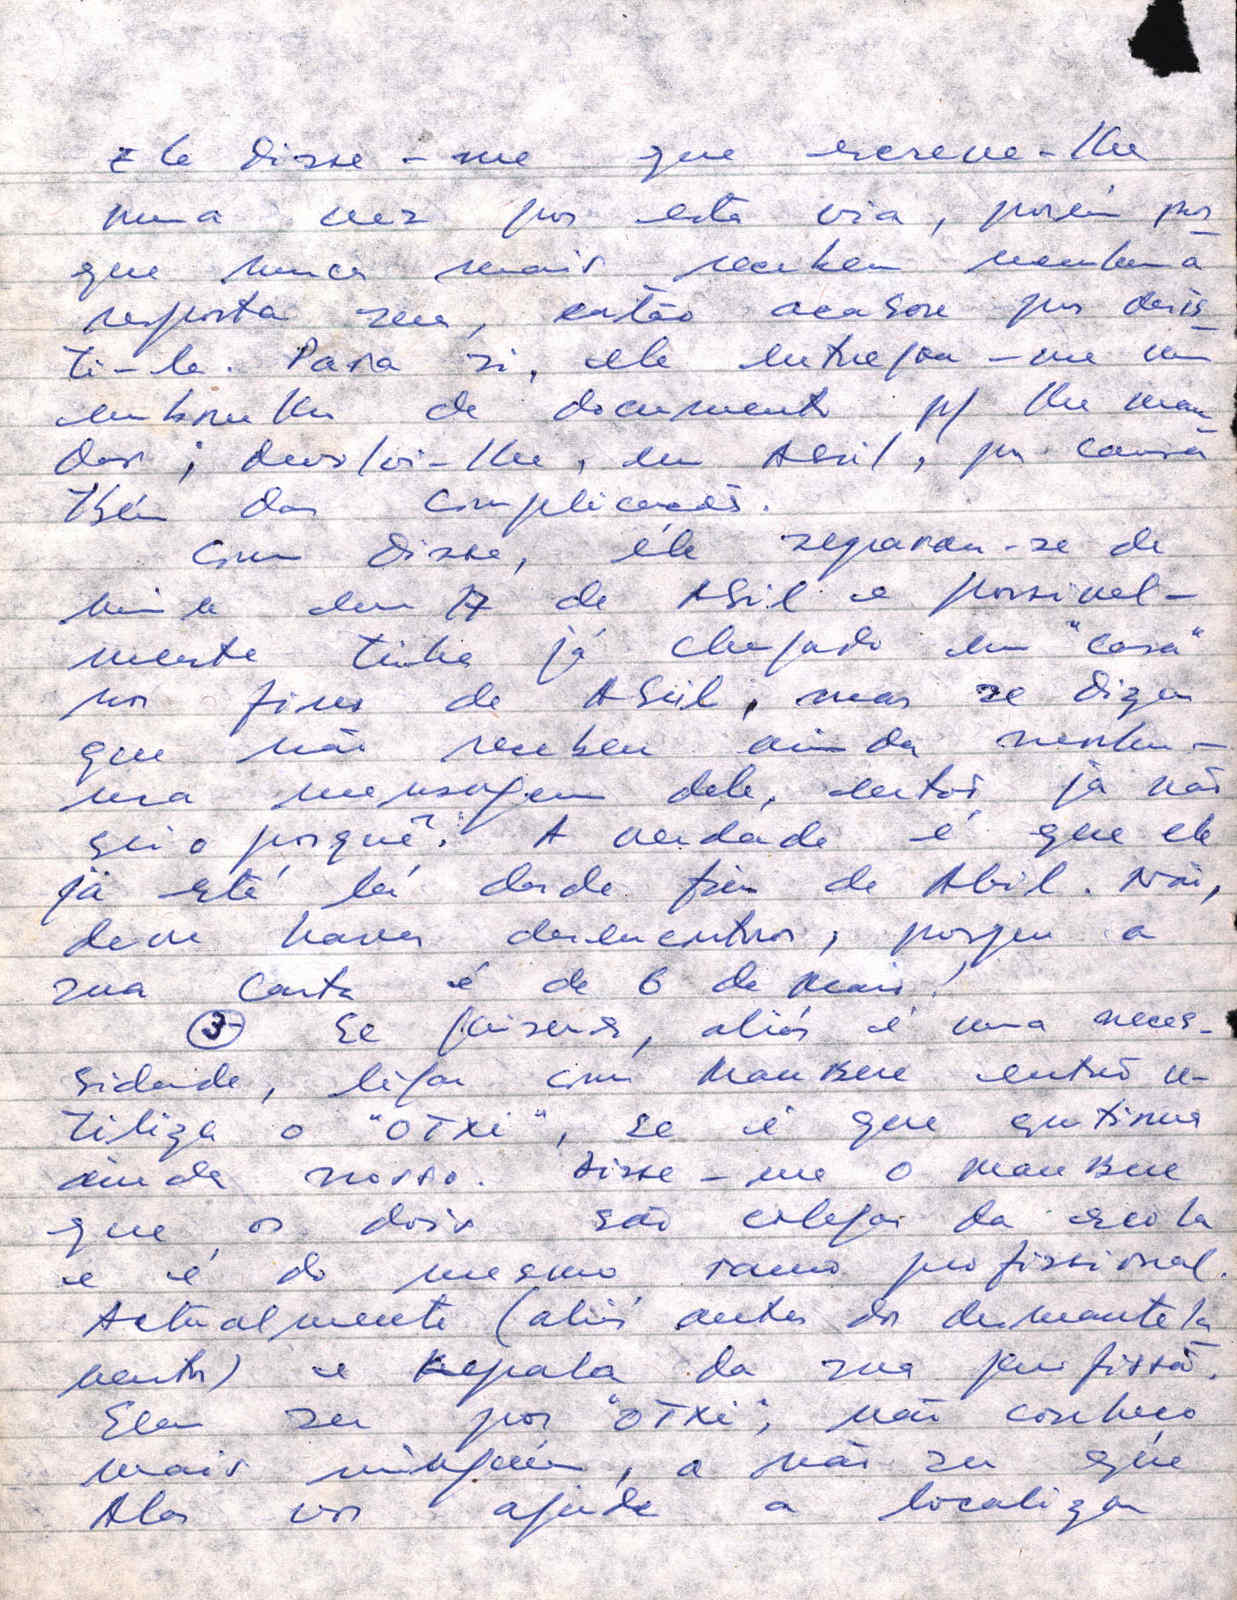 Ele disse-me que escreve-lhe
uma vez por esta via, porém por-
que nunca mais recebeu nenhuma
resposta sua, então acabou por desis-
ti-la. Para si, ele entregou-me um
embrulho de documento p/ lhe man-
dar; devolvi-lhe, em Abril, por causa
tbém das complicações.
Como disse, ele separou-se de
mim em 17 de Abril e possivel-
mente tinha já chegado em "casa"
nos fins de Abril, mas se dizem
que não recebeu ainda nenhu-
ma mensagem dele, então já não
sei o porquê? A verdade é que ele
já está lá desde fim de Abril. Não,
deve haver desencontros, porque a
sua carta é de 6 de Maio!
3- Se quiseres, aliás é uma neces-
sidade, ligar com Mau Bere então u-
tiliza o "OTXI", se é que continua
ainda nosso. Disse-me o Mau Bere
que os dois são colegas da escola
e é do mesmo ramo profissional.
Actualmente (aliás antes do desmantela
mento) e da sua profissão.
Sem ser por "OTXI", não conheço
mais ninguém, a não ser que
Alas vos ajude a localizar